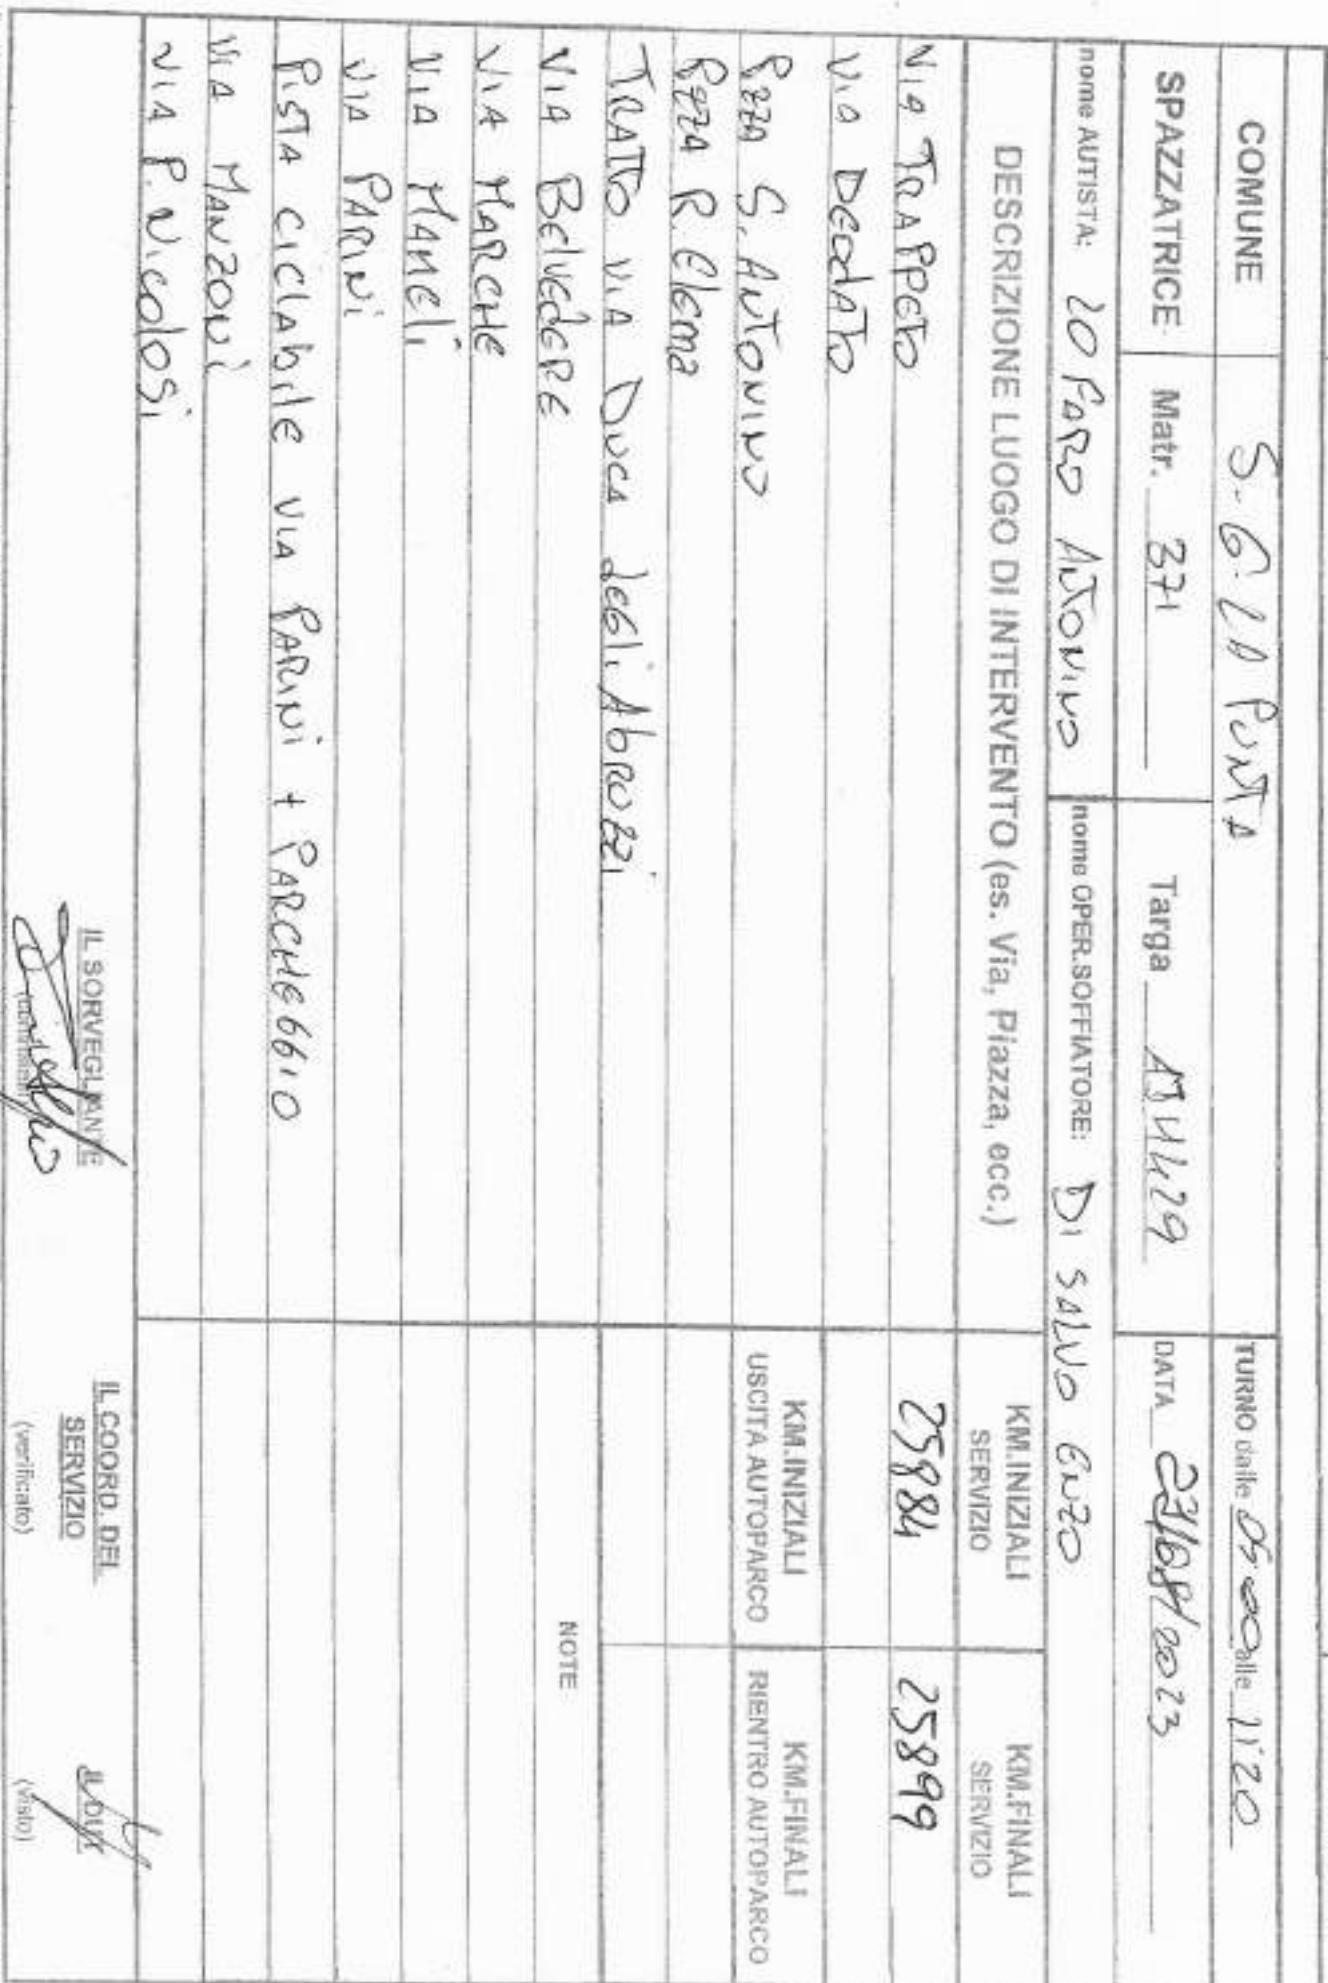 COMUNE S. G. LA PUNTA TURNO dalle 05.00 alle 11:20
SPAZZATRICE Matr. 371 Targa AJ4429 DATA 23/08/2023
nome AUTISTA: LO FARO ANTONINO nome OPER.SOFFIATORE: DI SALVO ENZO
DESCRIZIONE LUOGO DI INTERVENTO (es. Via, Piazza, ecc.)
KM.INIZIALI SERVIZIO
KM.FINALI SERVIZIO
VIA TRAPPETO 25884 25899
VIA DEODATO
PZZA S. ANTONINO
KM.INIZIALI USCITA AUTOPARCO
KM.FINALI RIENTRO AUTOPARCO
PZZA R. Elema
TRATTO VIA DUCA degli Abruzzi
VIA BelvedeRE NOTE
VIA MARCHE
VIA MAMeli
VIA PARINI
PISTA CICLAbile VIA PARINI + PARCHEGGIO
VIA MANZONI
VIA P. Nicolosi
IL SORVEGLIANTE
IL COORD. DEL
SERVIZIO
(verificato)
IL DUX
(visto)